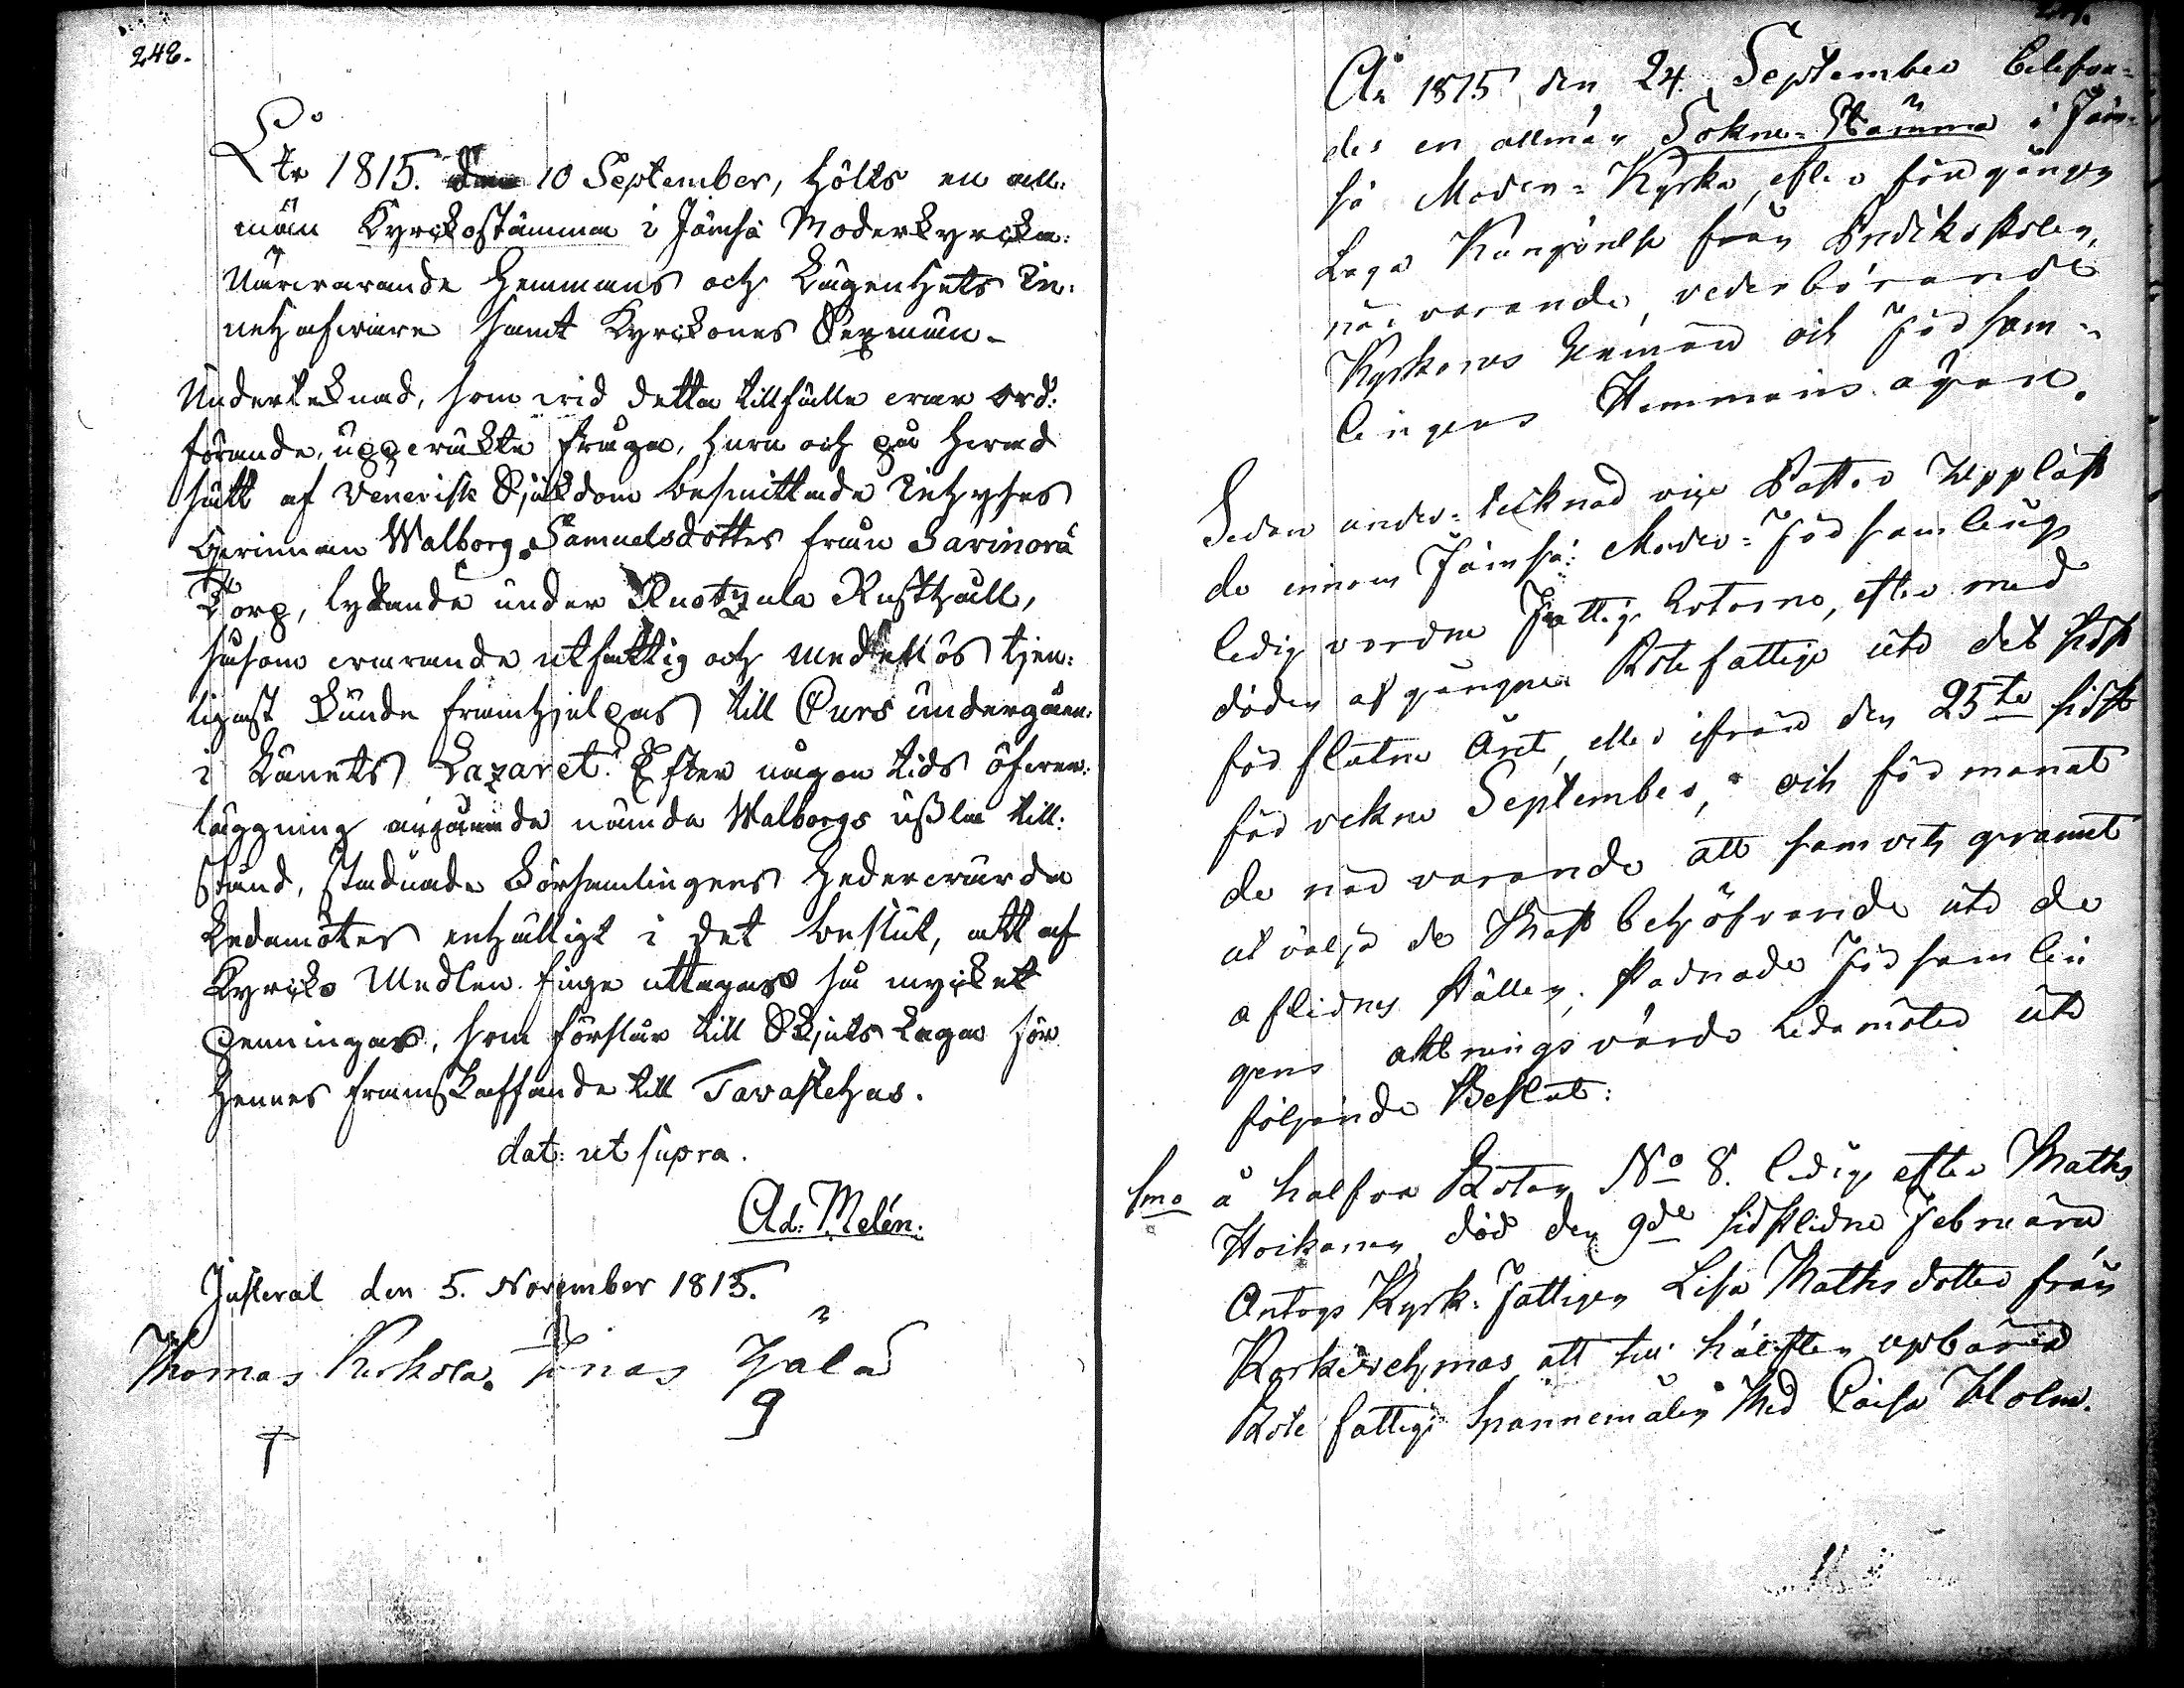 242.
År 1815. den 10 September, hölts en all:
män Kyrckostämma i Jämsä Moderkyrcka:
Närwarande Hemmans och Lägenhets In:
nehafware samt Kyrckones Sexmän.
Undertecknad, som wid detta tillfälle war ord:
förande, uppwäckte fråga, huru och på hwad
sätt af Venerisk Sjukdom besmittade Inhyses
Qwinnan Walborg Samuelsdotter från Sarinorä
Torp, lydande under Ruotzula Rusthåll,
såsom warande utfattig och medellös tjen:
ligast kunde framhjelpas till Curs undergåen:
i Länets Lazaret. Efter någon tids öfwer:
läggning angående nämde Walborgs ussla till:
stånd, stadnade Församlingens Hederwärda
Ledamöter enhälligt i det beslut, att af
Kyrcko Medlen finge uttagas så mycket
Penningar, som förslår till Skjuts Lega för
hennes framskaffande till Tavastehus.
dat: ut supra.
Ad: Melén.
Justerat den 5. November 1815.
Thomas Jonas
År 1815 den 24. September belefwa=
des en allmän Sokne-Stämma i Jäm=
sä Moder=Kyrka, efter föregången
Laga Kungörelse från Predikostolen,
närvarande, vederbörande
Kyrkones Sexmän och Församm=
lingens Hemmans ägare.
Sedan under=tecknad vice Pastor uppläst
de innom Jämsä Moder=Församlings
ledig vordne Fattig Rotorne, efter med
döden afgångna Rotefattige uti det sidst
förflutne Året, eller ifrån den 25te sidst
förvekne September, och förmanat
de närvarande att samvetsgrannt
utvälja de Mäst behöfvande uti de
aflidnes ställen; stadnade Församlin
gens aktningsvärde Ledamöter uti
följande Beslut:
1mo å halfva Rotan No 8. ledig efter Maths
Hoikanen, död den 9de sidstledne Februarii
Antogs Kyrk-Fattigen Lisa Mathsdotter från
att till hälften uppbära
Rote fattige Spannemålen Med Caisa Holm.